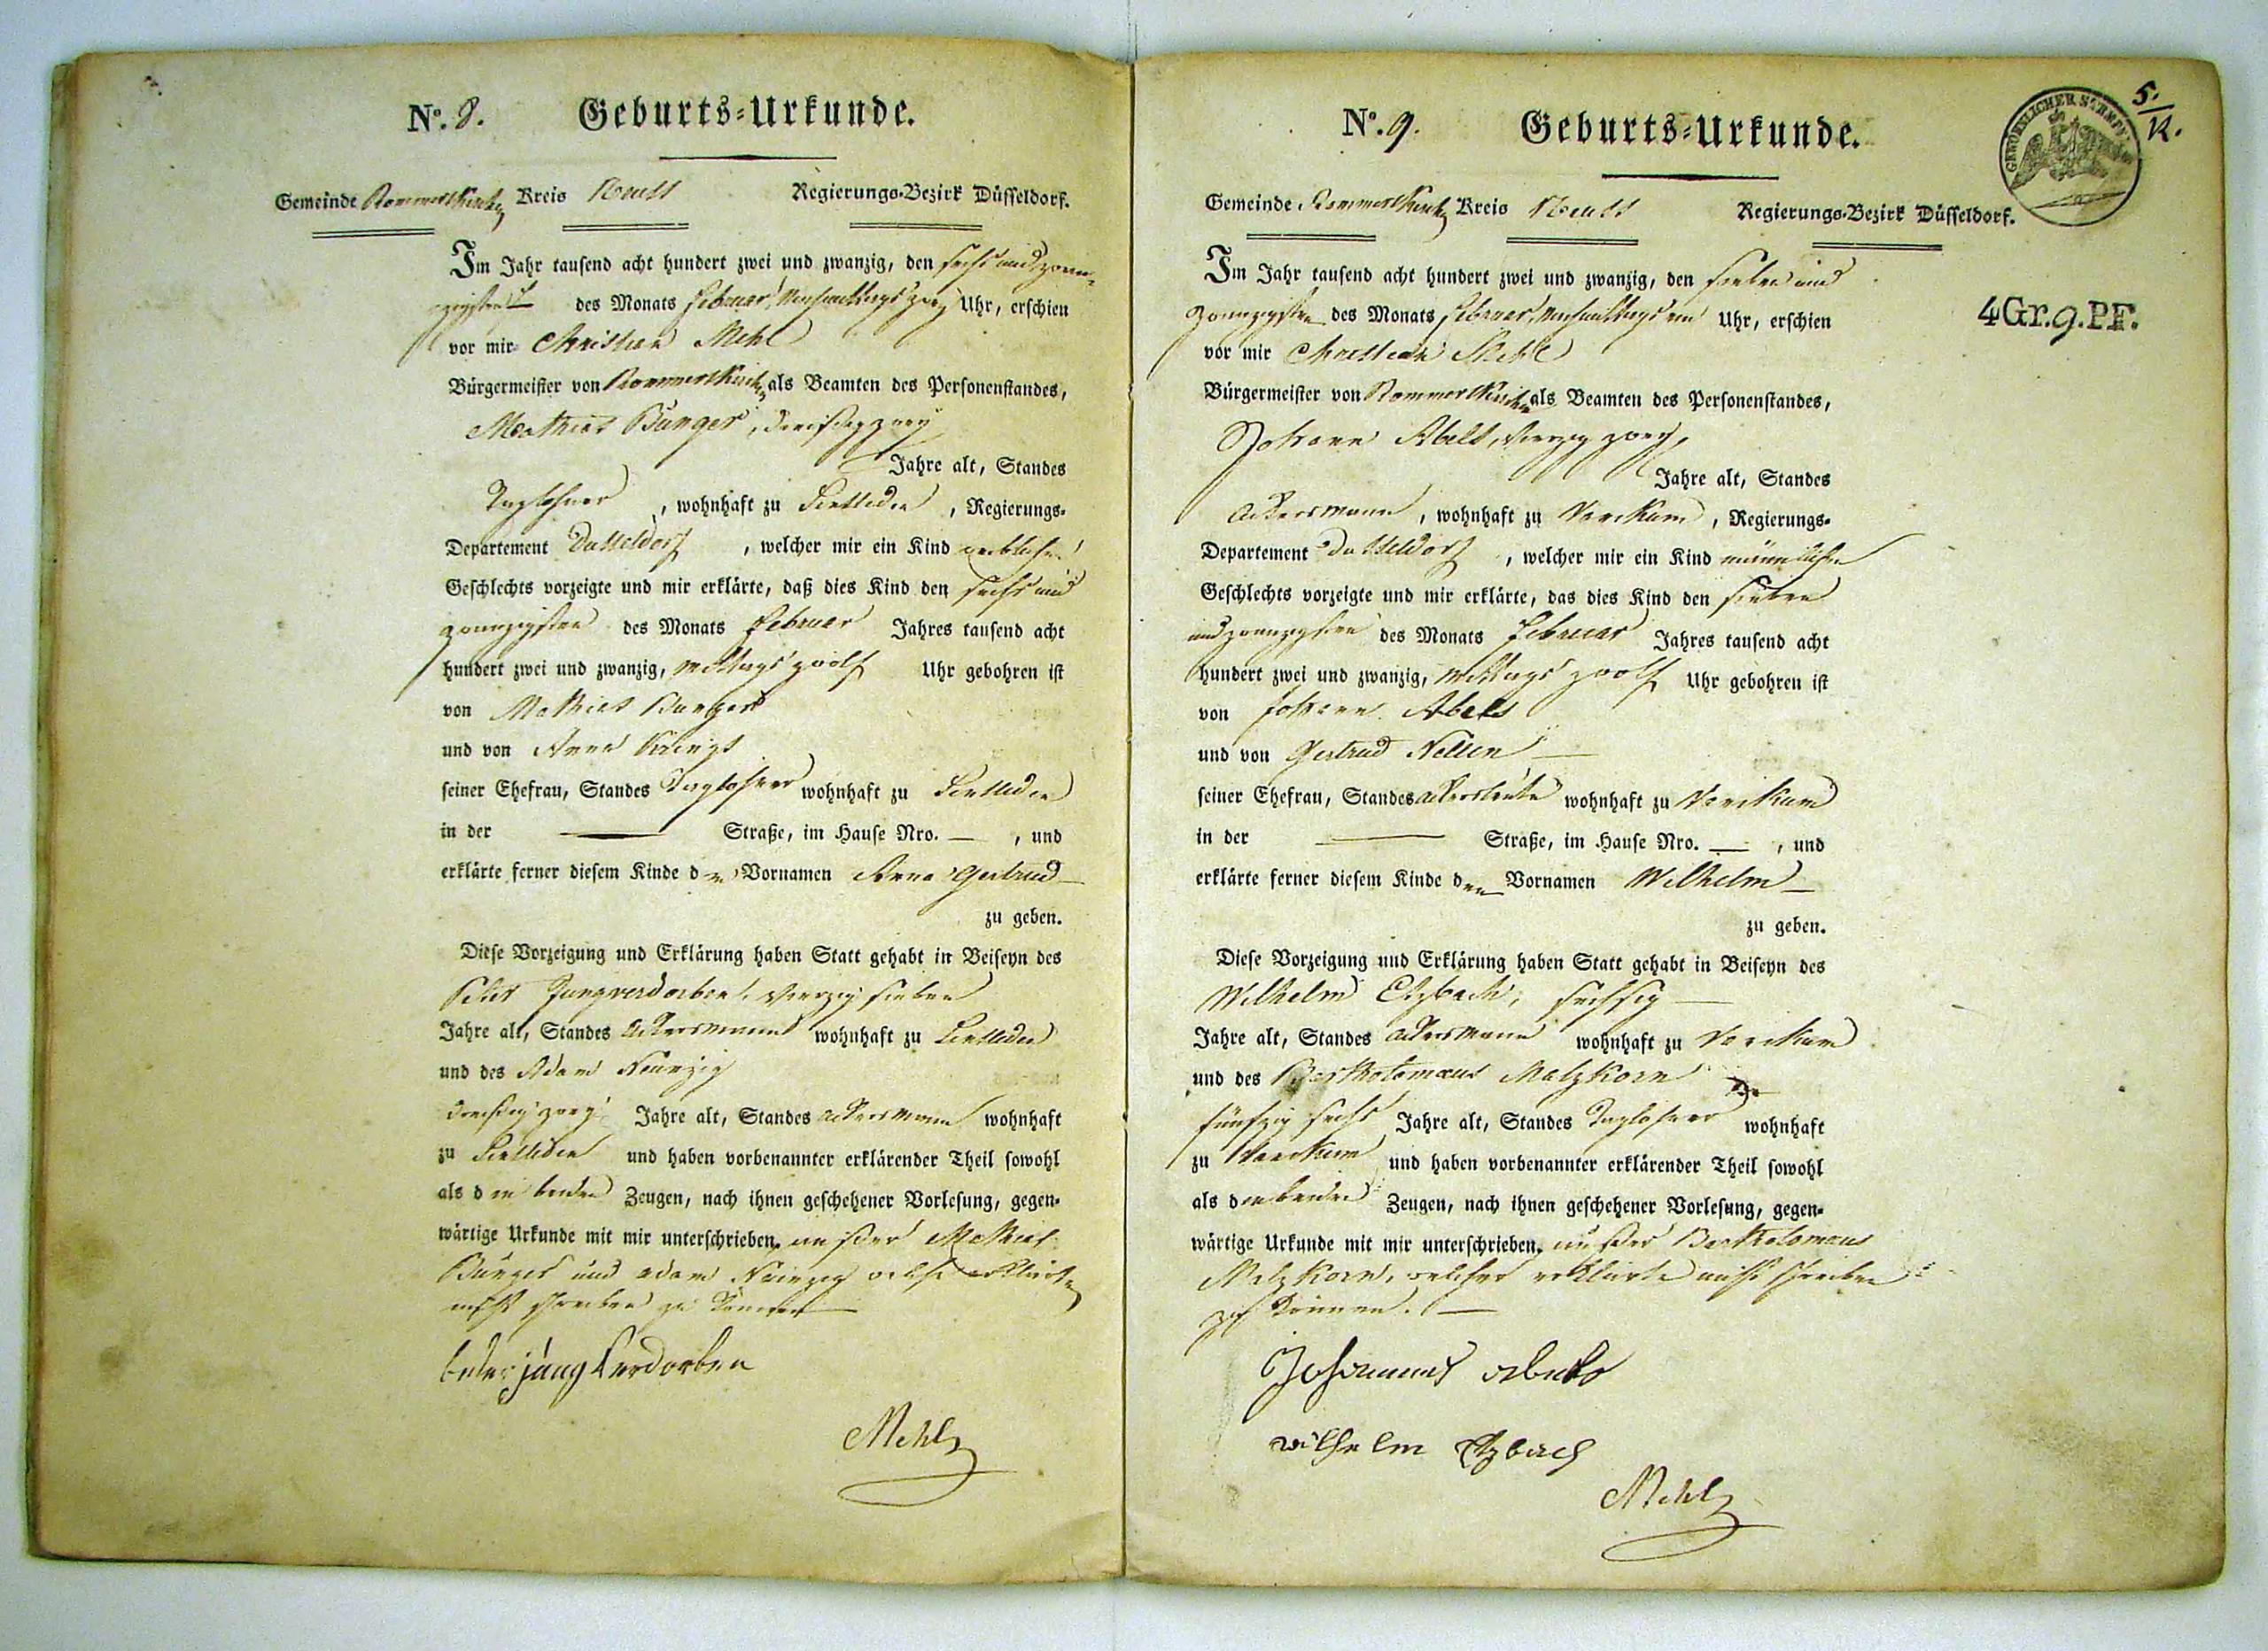 No. 8. Geburts=Urkunde.
Gemeinde Rommerskirchen Kreis Neuss Regierungs=Bezirk Düsseldorf.
Im Jahr tausend acht hundert zwei und zwanzig, den sechs und zwan-
zigsten des Monats Februar, Nachmittags zwey Uhr, erschien
vor mir Christian Mehl
Bürgermeister von Rommerskirchen als Beamten des Personenstandes,
Mathias Bünger, dreisig zwey
Jahre alt, Standes
Taglohner, wohnhaft zu , Regierungs=
Departement Dusseldorf, welcher mir ein Kind weibliches
Geschlechts vorzeigte und mir erklärte, daß dies Kind den sechs und
zwanzigsten des Monats Februar Jahres tausend acht
hundert zwei und zwanzig, mittags zwolf Uhr gebohren ist
von Mathias Bungers
und von Anna Krings
seiner Ehefrau, Standes Taglohner wohnhaft zu
in der — Straße, im Hause Nro. —, und
erklärte ferner diesem Kinde den Vornamen Anna Gertrud —
zu geben.
Diese Vorzeigung und Erklärung haben Statt gehabt in Beiseyn des
Peter Jungverdorben, vierzig sieben
Jahre alt, Standes Ackersmann wohnhaft zu
und des Adam
dreisig zwey Jahre alt, Standes Ackersmann wohnhaft
zu und haben vorbenannter erklärender Theil sowohl
als die beiden Zeugen, nach ihnen geschehener Vorlesung, gegen=
wärtige Urkunde mit mir unterschrieben, ausser Mathias
Bünger und Adam welche erklärten
nicht schreiben zu können —
Peter jungverdorben
Mehl
No. 9. Geburts=Urkunde.
GEWOEHNLICHER STEMPEL
5./12.
4Gr.9.PF.
Gemeinde Rommerskirchen Kreis Neuss Regierungs=Bezirk Düsseldorf.
Im Jahr tausend acht hundert zwei und zwanzig, den sieben und
zwanzigsten des Monats Februar, Nachmittags ein Uhr, erschien
vor mir Christian Mehl
Bürgermeister von Rommerskirchen als Beamten des Personenstandes,
Johann Abels, vierzig zwey,
Jahre alt, Standes
Ackersmann, wohnhaft zu Vanikum, Regierungs=
Departement Dusseldorf, welcher mir ein Kind männliches
Geschlechts vorzeigte und mir erklärte, das dies Kind den sieben
und zwanzigsten des Monats Februar Jahres tausend acht
hundert zwei und zwanzig, mittags zwolf Uhr gebohren ist
von Johann Abels
und von Gertrud Nellen —
seiner Ehefrau, Standes Ackersleute wohnhaft zu Vanikum
in der — Straße, im Hause Nro. —, und
erklärte ferner diesem Kinde den Vornamen Wilhelm —
zu geben.
Diese Vorzeigung und Erklärung haben Statt gehabt in Beiseyn des
Wilhelm Etzbach, sechsig —
Jahre alt, Standes Ackersmann wohnhaft zu Vanikum
und des Bartholomæus Malzkorn
fünfzig sechs Jahre alt, Standes Taglohner wohnhaft
zu Vanikum und haben vorbenannter erklärender Theil sowohl
als die beiden Zeugen, nach ihnen geschehener Vorlesung, gegen=
wärtige Urkunde mit mir unterschrieben, ausser Bartholomæus
Malzkorn, welcher erklärte nicht schreiben
zu können. —
Johannes abels
wilhelm Etzbach
Mehl